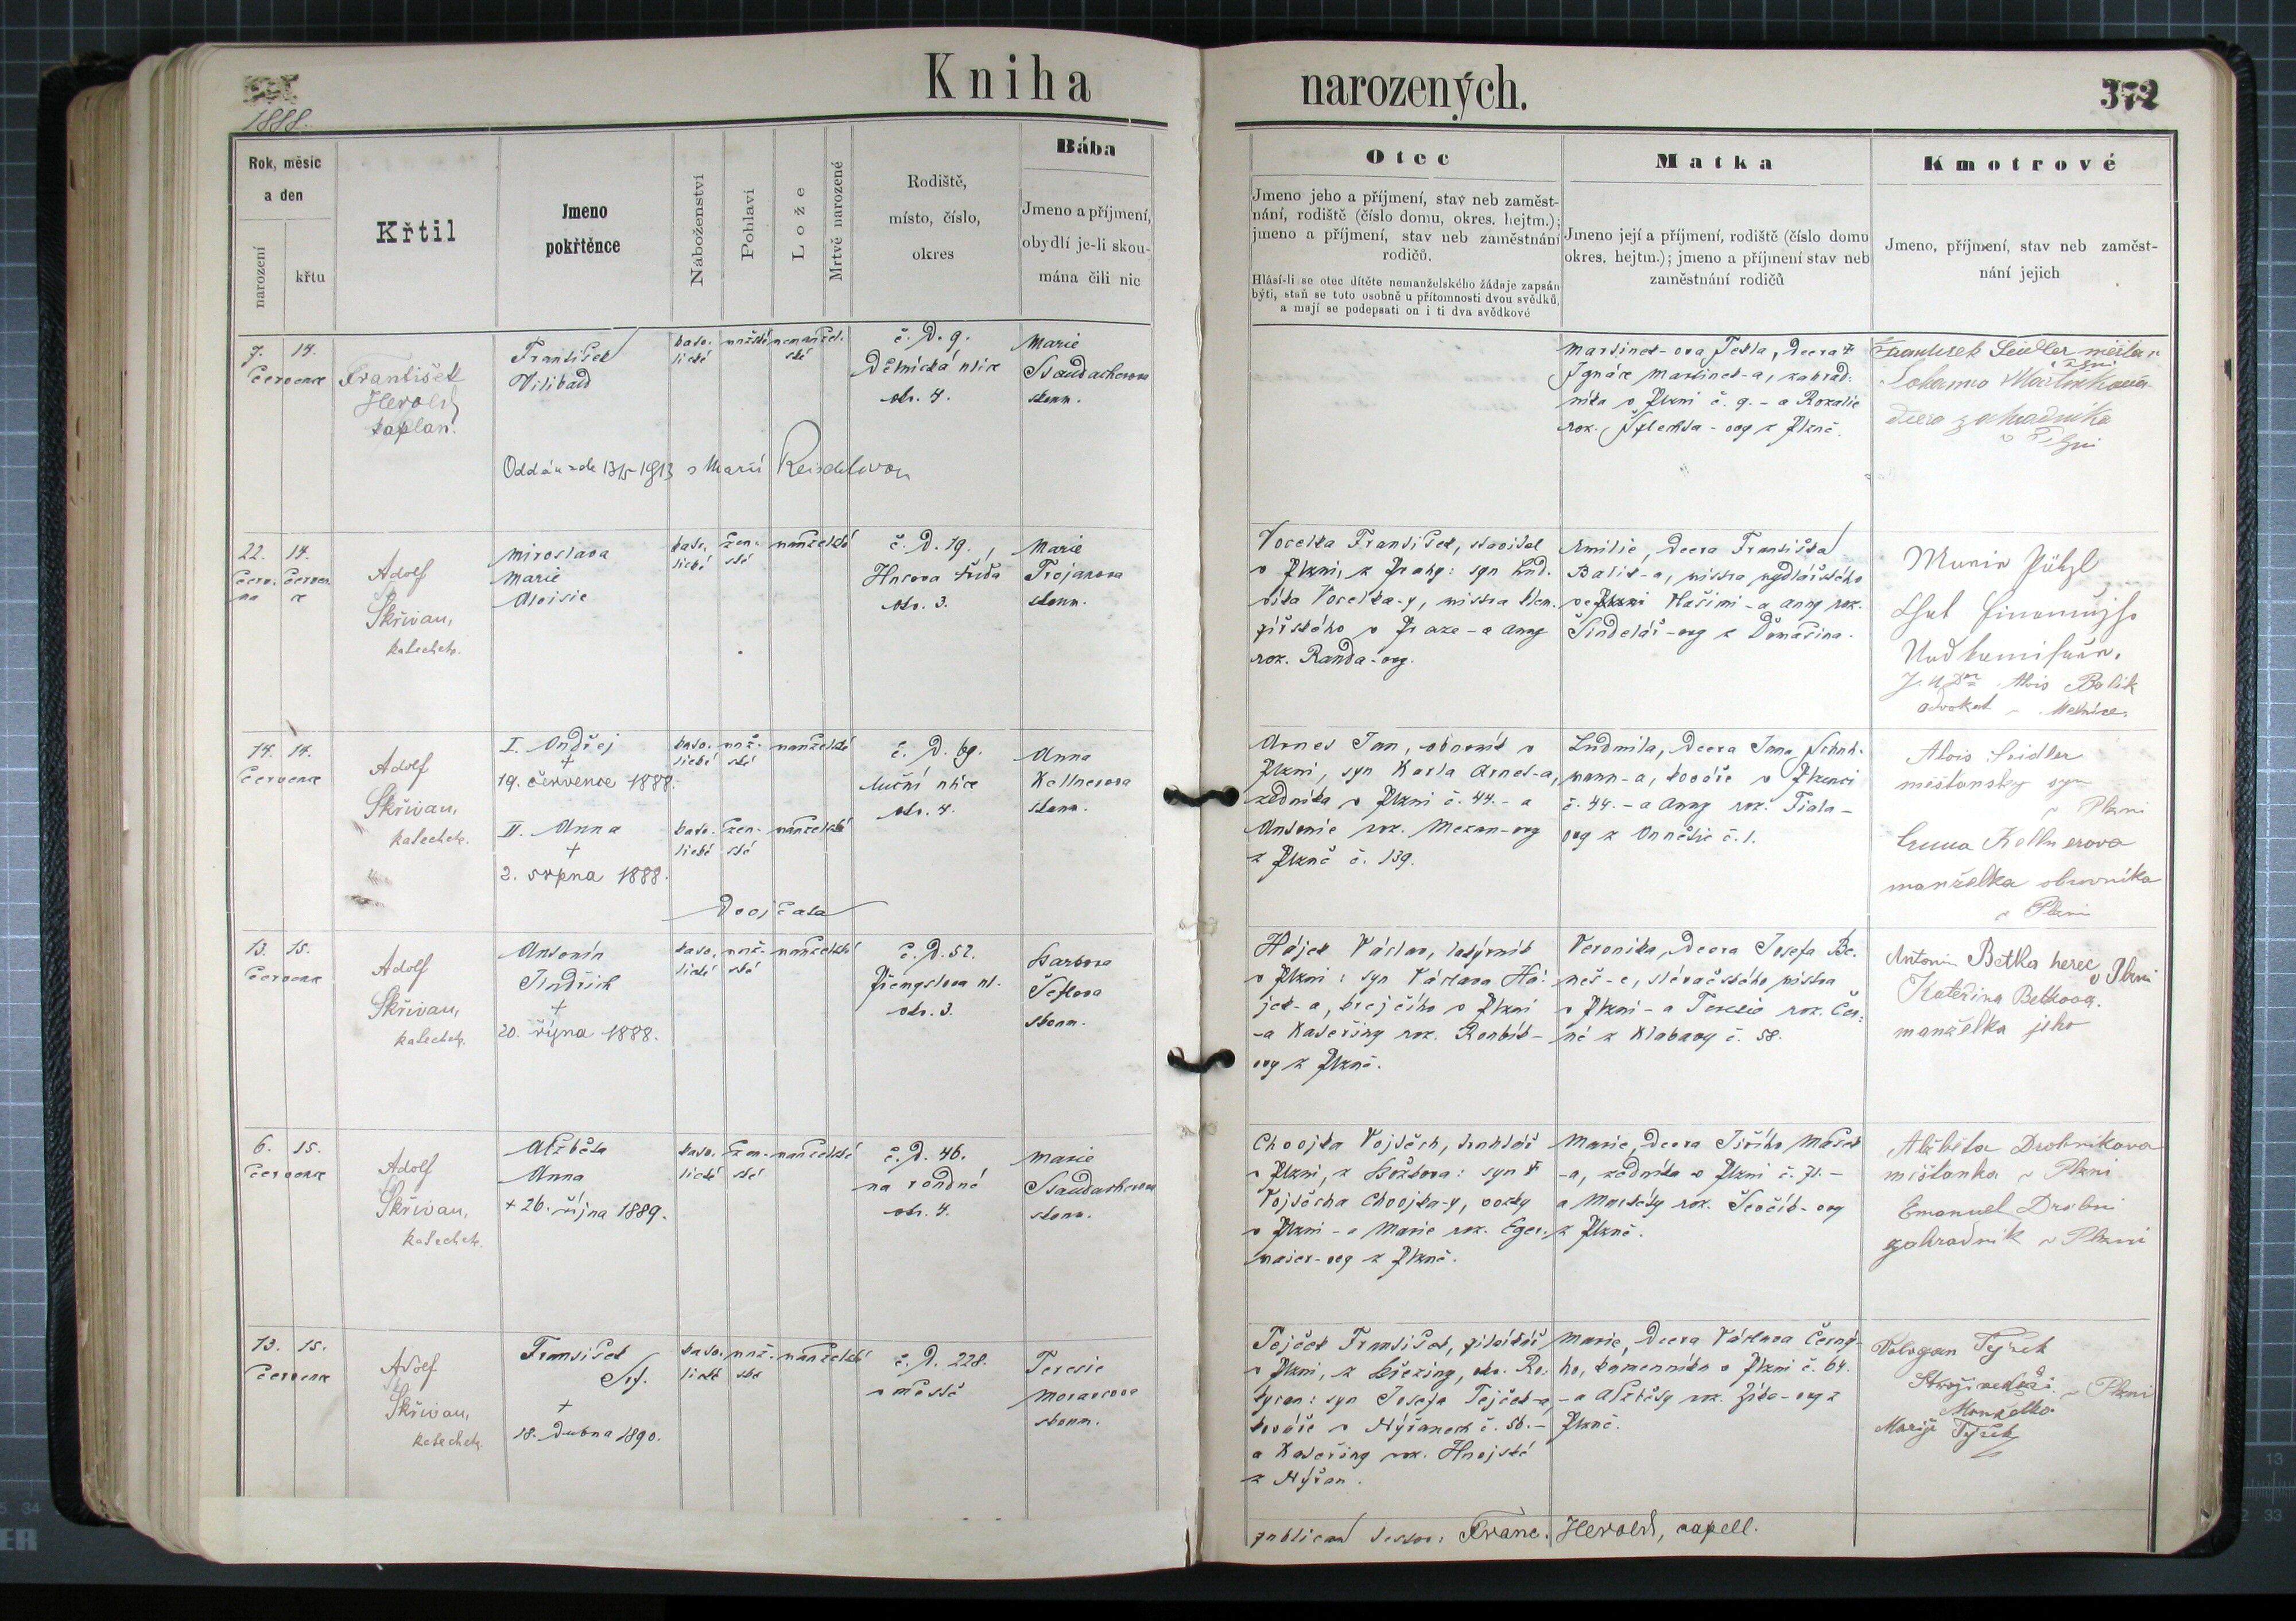 Kniha
narozených.
372
1888.
Rok, měsíc
a den
narození
křtu
Křtil
Jmeno
pokřtěnce
Náboženství
Pohlaví
Lože
Mrtvě narozené
Rodiště,
místo, číslo,
okres
Bába
Jmeno a příjmení,
obydlí je-li skou-
mána čili nic
Otec
Jmeno jeho a příjmení, stav neb zaměst-
nání, rodiště (číslo domu, okres. hejtm.);
jmeno a příjmení, stav neb zaměstnání
rodičů.
Hlásí-li se otec dítěte nemanželského žádaje zapsán
býti, staň se toto osobně u přítomnosti dvou svědků,
a mají se podepsati on i ti dva svědkové
Matka
Jmeno její a příjmení, rodiště (číslo domu
okres. hejtm.); jmeno a příjmení stav neb
zaměstnání rodičů
Kmotrové
Jmeno, příjmení, stav neb zaměst-
nání jejich
7. 14.
července
František
Herold
kaplan.
František
Vilibald
kato-
lické
mužské
nemanžel-
ské
č. d. 9.
Dělnická ulice
otr. 4.
Marie
zkoum.
Oddán zde 13/5 1913 s Marií
Martinek-ova Tekla, dcera
Ignáce Martinek-a, zahrad-
níka v Plzni č. 9. - a Rozalie
roz. z Plzně.
František Seidler měšťan
v Plzni
dcera zahradníka
v Plzni
22. 14.
červ-
na
červen-
ce
Adolf
Skřivan,
katecheta.
Miroslava
Marie
Aloisie
kato-
lické
žen-
ské
manželské
č. d. 19.
Husova třída
otr. 3.
Marie
Trojanova
zkoum.
Vocelka František, stavitel
v Plzni, z Prahy: syn Lud-
víka Vocelka-y, mistra klem-
pířského v Praze - a Anny
roz. Randa-ovy.
Emilie, dcera Františka
Balík-a, mistra mydlářského
ve Plzni - a Anny roz.
Šindelář-ovy z Domažlic.
Marie Pützl
J. U. Dr. Alois Balík
advokat
14. 14.
července
Adolf
Skřivan,
katecheta.
I. Ondřej
+
19. července 1888.
II. Anna
+
2. srpna 1888.
kato-
lické
muž-
ské
manželské
kato-
lické
žen-
ské
manželské
Dvojčata
č. d. 69.
Luční ulice
otr. 4.
Anna
Kellnerova
zkoum.
Arnet Jan, obuvník v
Plzni, syn Karla Arnet-a,
zedníka v Plzni č. 44. - a
Antonie roz. Mezan-ovy
z Plzně č. 139.
Ludmila, dcera Jana Schuh-
mann-a, kováře v Plzni
č. 44. - a Anny roz. Fiala-
ovy z č. 1.
Alois Seidler
měšťanský syn
v Plzni
Anna Kellnerova
manželka obuvníka
v Plzni
13. 15.
července
Adolf
Skřivan,
katecheta.
Antonín
Jindřich
+
20. října 1888.
kato-
lické
muž-
ské
manželské
č. d. 52.
Přemyslova ul.
otr. 3.
Barbora
Šeflova
zkoum.
Hájek Václav, lakýrník
v Plzni: syn Václava Há-
jek-a, krejčího v Plzni
- a Kateřiny roz. Roubík-
ovy z Plzně.
Veronika, dcera Josefa Be-
neš-e, slévačského mistra
v Plzni - a Terezie roz. Čer-
né z Klabavy č. 58.
Antonin Betka herec v Plzni
Kateřina Betkova.
manželka jeho
6. 15.
července
Adolf
Skřivan,
katecheta.
Alžběta
Anna
+ 26. října 1889.
kato-
lické
žen-
ské
manželské
č. d. 46.
na roudné
otr. 4.
Marie
zkoum.
Chvojka Vojtěch, truhlář
v Plzni, z syn
Vojtěcha Chvojka-y,
v Plzni - a Marie roz. Eger-
maier-ovy z Plzně.
Marie, dcera Jiřího Mašek
-a, zedníka v Plzni č. 71. -
a Markéty roz. Ševčík-ovy
z Plzně.
Alžběta Drobníkova
měšťanka v Plzni
Emanuel
zahradník v Plzni
13. 15.
července
Adolf
Skřivan,
katecheta.
František
Sef.
+
18. dubna 1890.
kato-
lické
muž-
ské
manželské
č. d. 228.
v městě
Terezie
Moravcova
zkoum.
Tejček František,
v Plzni, z Březiny, okr. Ro-
kycan: syn Josefa Tejček-a,
kováře v Nýřanech č. 56. -
a Kateřiny roz. Hnojské
z Nýřan.
Marie, dcera Václava Černé-
ho, kameníka v Plzni č. 64.
- a Alžběty roz. Zíka-ovy z
Plzně.
v Plzni
Manželka
Marije
Franc. Herold, capell.